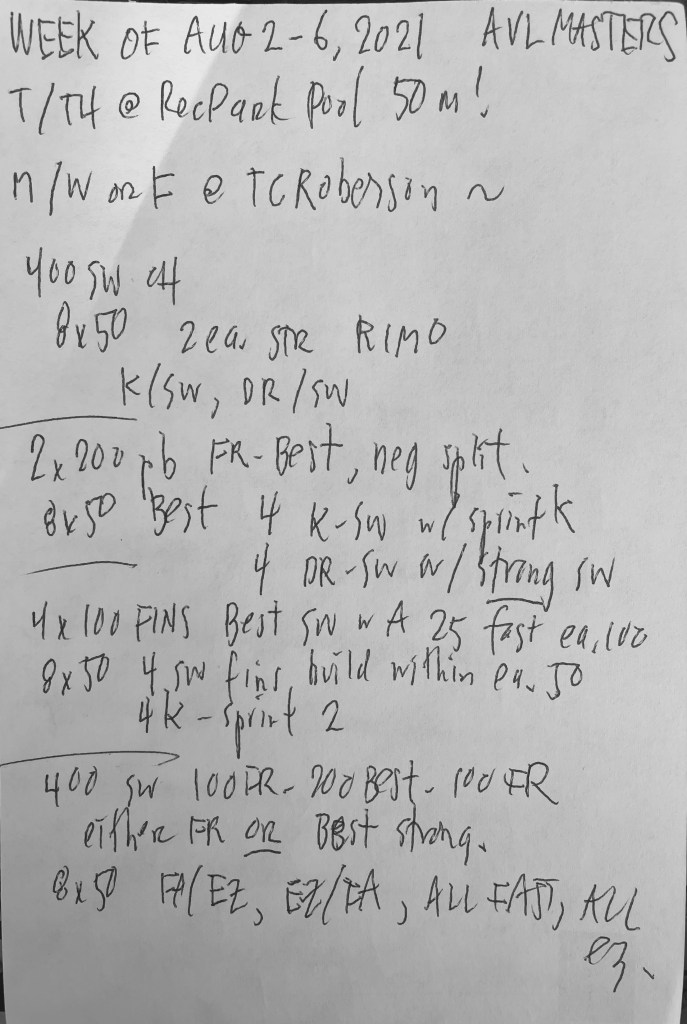 WEEK OF AUG 2-6, 2021 AVL MASTERS
T/TH @ RecPark Pool 50 m!
M/W or F @ TC Roberson ~
400 SW CH
8x50 2 ea. STR RIMO
K/SW, DR/SW
2x200 pb FR-Best, neg split.
8x50 Best 4 K-SW w/ sprint K
4 DR-SW w/ strong SW
4x100 FINS Best SW w A 25 fast ea, 100
8x50 4 SW fins, build within ea. 50
4K-sprint 2
400 SW 100 FR-200 Best-100 FR
either FR OR Best strong.
8x50 FA/EZ, EZ/FA, ALL FAST, ALL
ez.